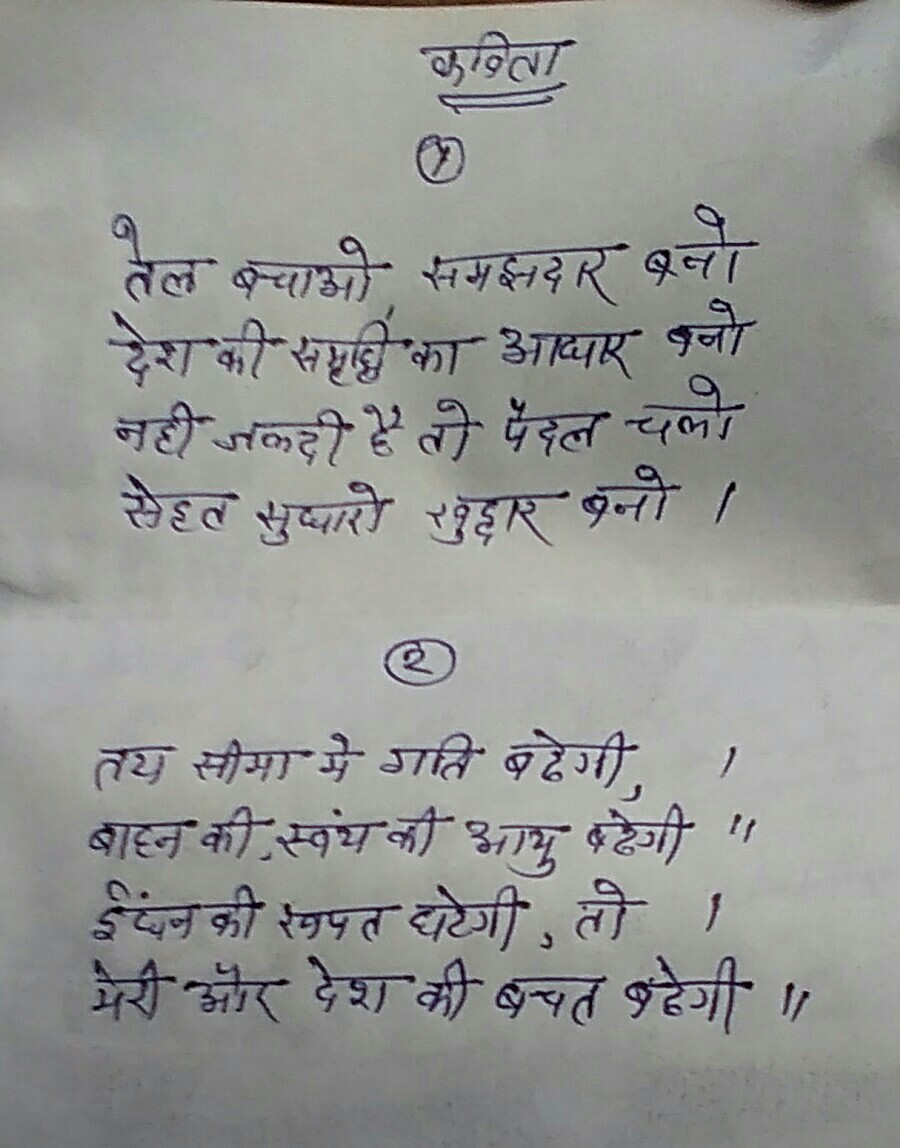 कविता
१
तेल बचाओ, समझदार बनो
देश की समृद्धि का आधार बनो
नही जल्दी है तो पैदल चलो
सेहत सुधारो खुद्दार बनो ।
२
तय सीमा मे गति बढेगी, ।
बाहन की, स्वंय की आयु बढेगी ॥
ईंधन की खपत घटेगी, तो ।
मेरी और देश की बचत बढेगी ॥